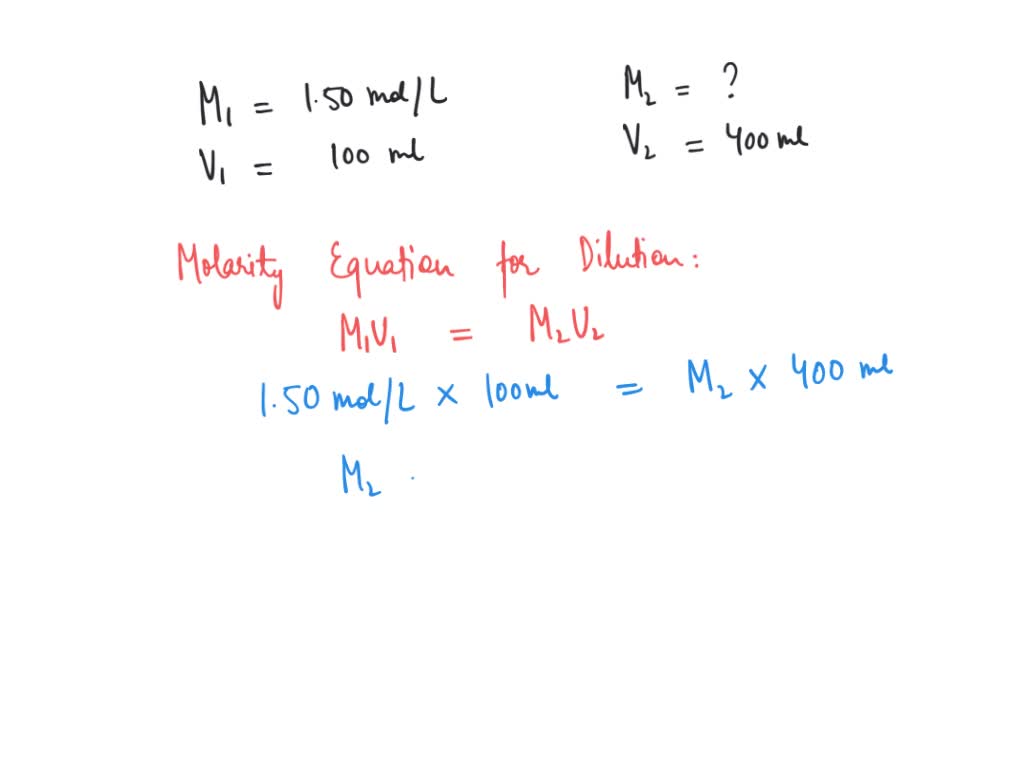 M₁ = 1.50 mol/L M₂ = ?
V₁ = 100 ml V₂ = 400 ml
Molarity Equation for Dilution:
M₁V₁ = M₂V₂
1.50 mol/L × 100 ml = M₂ × 400 ml
M₂